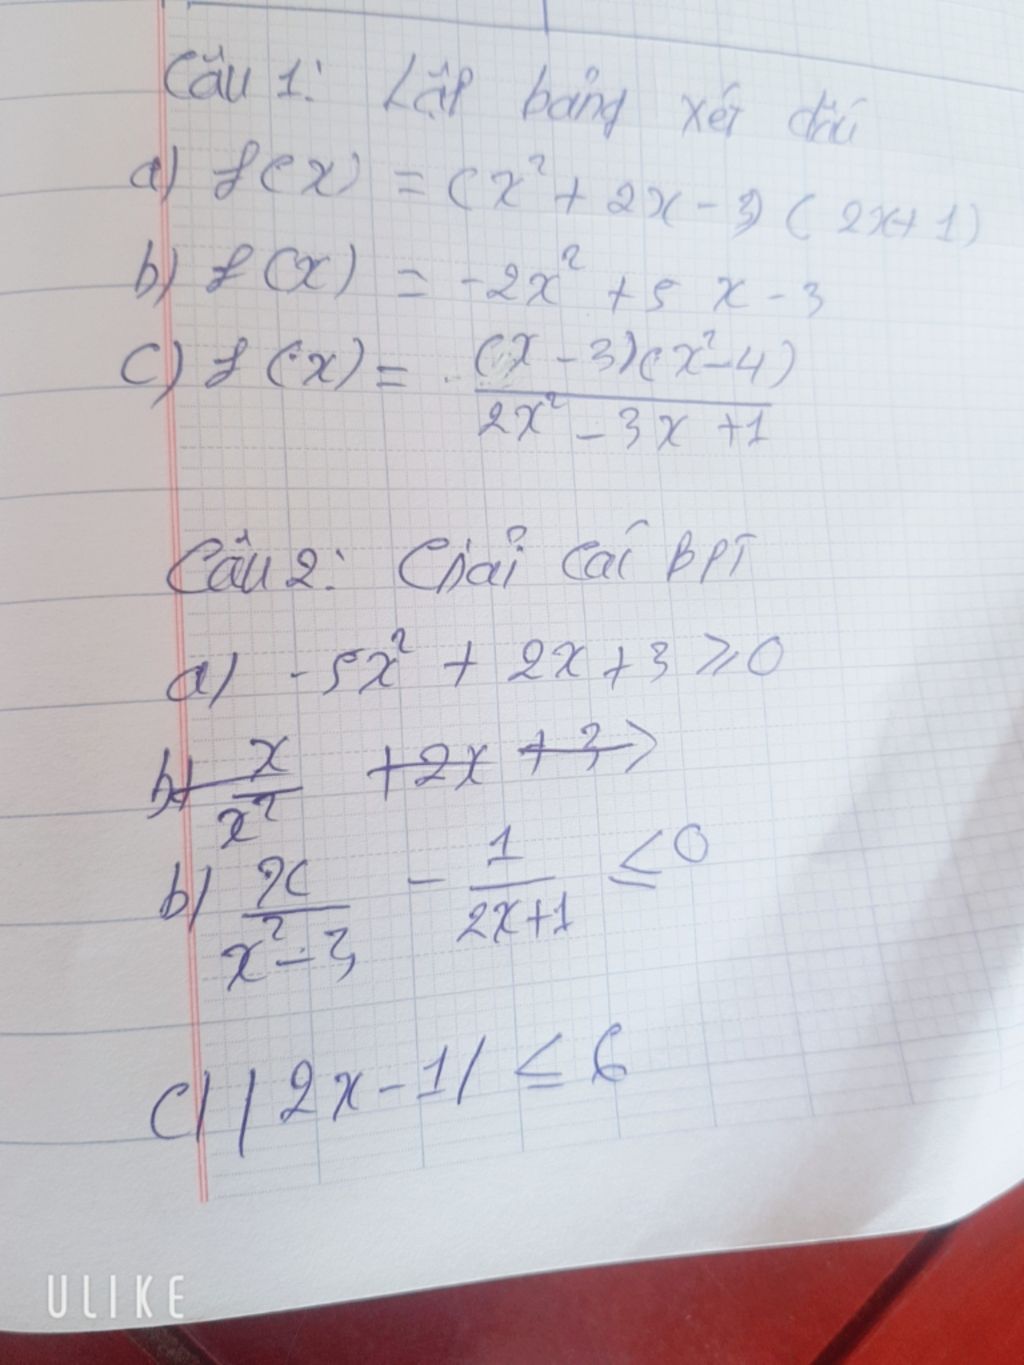 Câu 1: Lập bảng xét dấu
a) f(x) = (x² + 2x - 3)(2x+1)
b) f(x) = -2x² + 5x - 3
c) f(x) = (x - 3)(x² - 4)
2x² - 3x + 1
Câu 2: Giải các BPT
a) -5x² + 2x + 3 ≥ 0
b) x/x² + 2x + 3 >
b) x/(x² - 3) - 1/(2x+1) ≤ 0
c) |2x - 1| ≤ 6
ULIKE